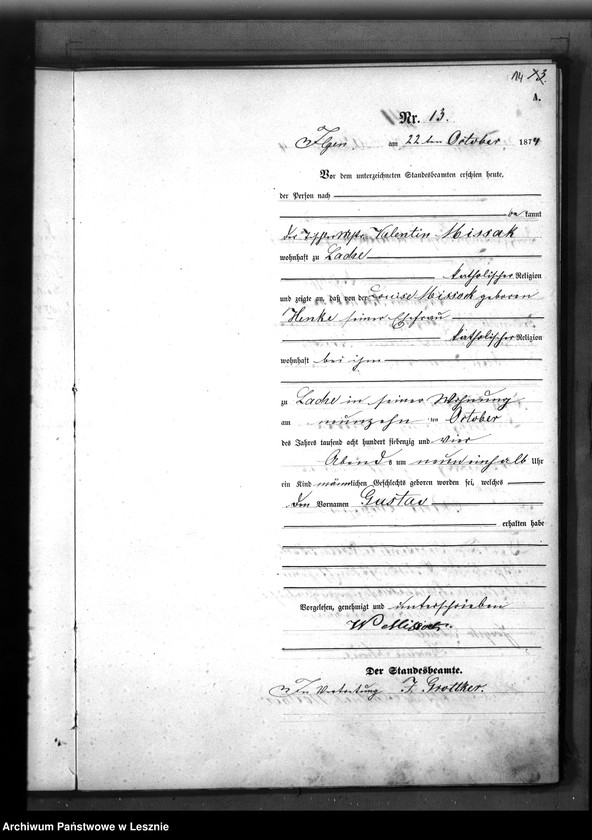 14 13.
A.
Nr. 13.
Ilgen, am 22ten October 1874
Vor dem unterzeichneten Standesbeamten erschien heute,
der Person nach
bekannt
der Tischler Mstr. Valentin Missak
wohnhaft zu Lache
katholischer Religion
und zeigte an, daß von der Louise Missack geboren
Henke seiner Ehefrau
katholischer Religion
wohnhaft bei ihm
zu Lache in seiner Wohnung
am neunzehnten October
des Jahres tausend acht hundert siebenzig und vier
Abends um neuneinhalb Uhr
ein Kind männlichen Geschlechts geboren worden sei, welches
den Vornamen Gustav
erhalten habe
Vorgelesen, genehmigt und unterschrieben
Der Standesbeamte.
In Vertretung
Archiwum Państwowe w Lesznie